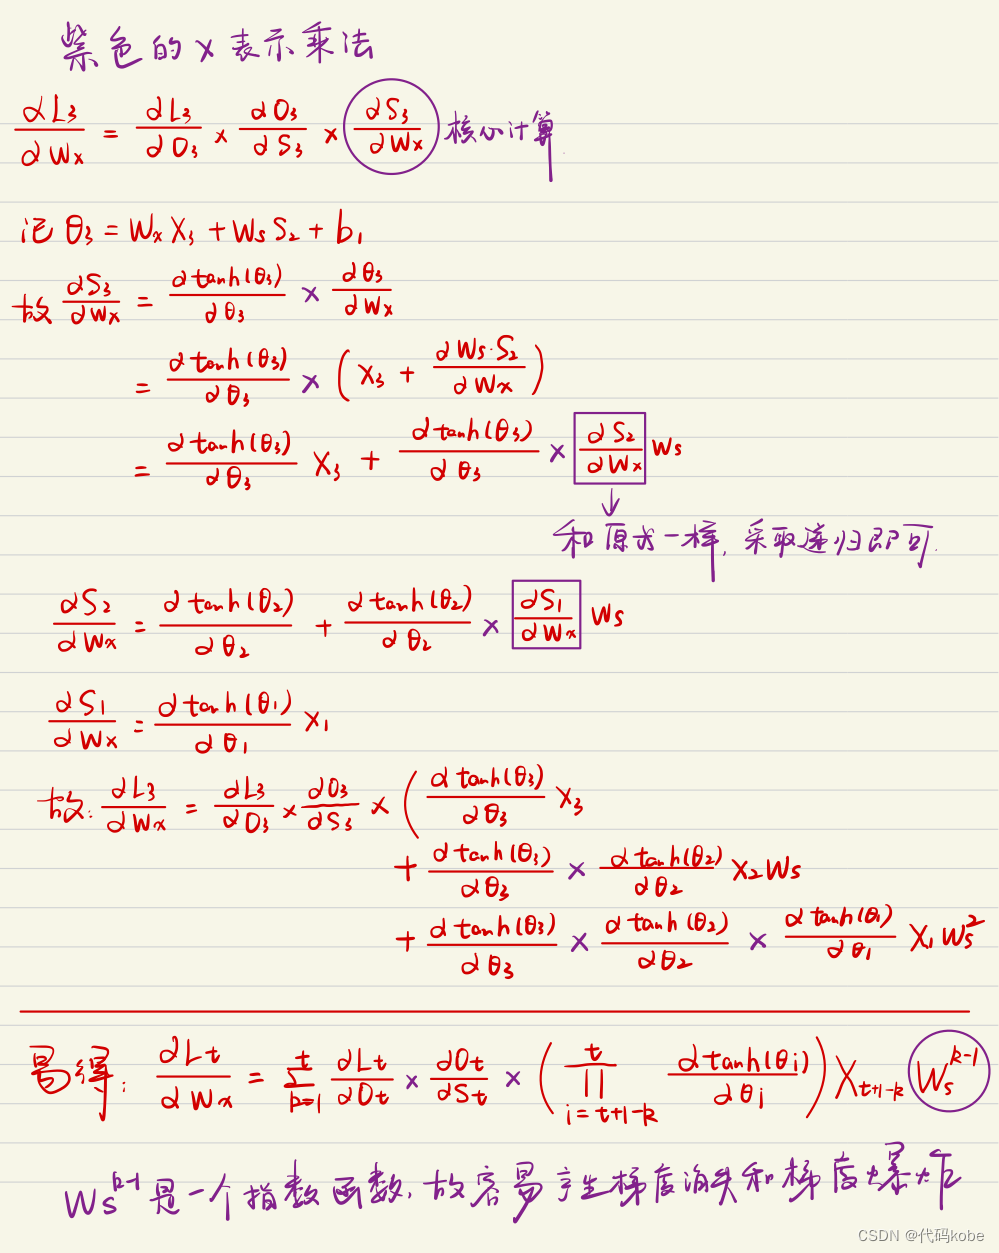 紫色的 x 表示乘法
∂L₃/∂Wx = ∂L₃/∂O₃ × ∂O₃/∂S₃ × ∂S₃/∂Wx 核心计算
记 θ₃ = Wx X₃ + Ws S₂ + b₁
故 ∂S₃/∂Wx = ∂tanh(θ₃)/∂θ₃ × ∂θ₃/∂Wx
= ∂tanh(θ₃)/∂θ₃ × (X₃ + ∂Ws·S₂/∂Wx)
= ∂tanh(θ₃)/∂θ₃ X₃ + ∂tanh(θ₃)/∂θ₃ × ∂S₂/∂Wx Ws
↓
和原式一样, 采取递归即可.
∂S₂/∂Wx = ∂tanh(θ₂)/∂θ₂ + ∂tanh(θ₂)/∂θ₂ × ∂S₁/∂Wx Ws
∂S₁/∂Wx = ∂tanh(θ₁)/∂θ₁ X₁
故: ∂L₃/∂Wx = ∂L₃/∂O₃ × ∂O₃/∂S₃ × (∂tanh(θ₃)/∂θ₃ X₃
+ ∂tanh(θ₃)/∂θ₃ × ∂tanh(θ₂)/∂θ₂ X₂Ws
+ ∂tanh(θ₃)/∂θ₃ × ∂tanh(θ₂)/∂θ₂ × ∂tanh(θ₁)/∂θ₁ X₁Ws²
易得: ∂Lt/∂Wx = Σ_{k=1}^{t} ∂Lt/∂Ot × ∂Ot/∂St × (∏_{i=t+1-k}^{t} ∂tanh(θi)/∂θi) X_{t+1-k} Ws^{k-1}
Ws^{k-1} 是一个指数函数, 故容易产生梯度消失和梯度爆炸
CSDN @代码kobe